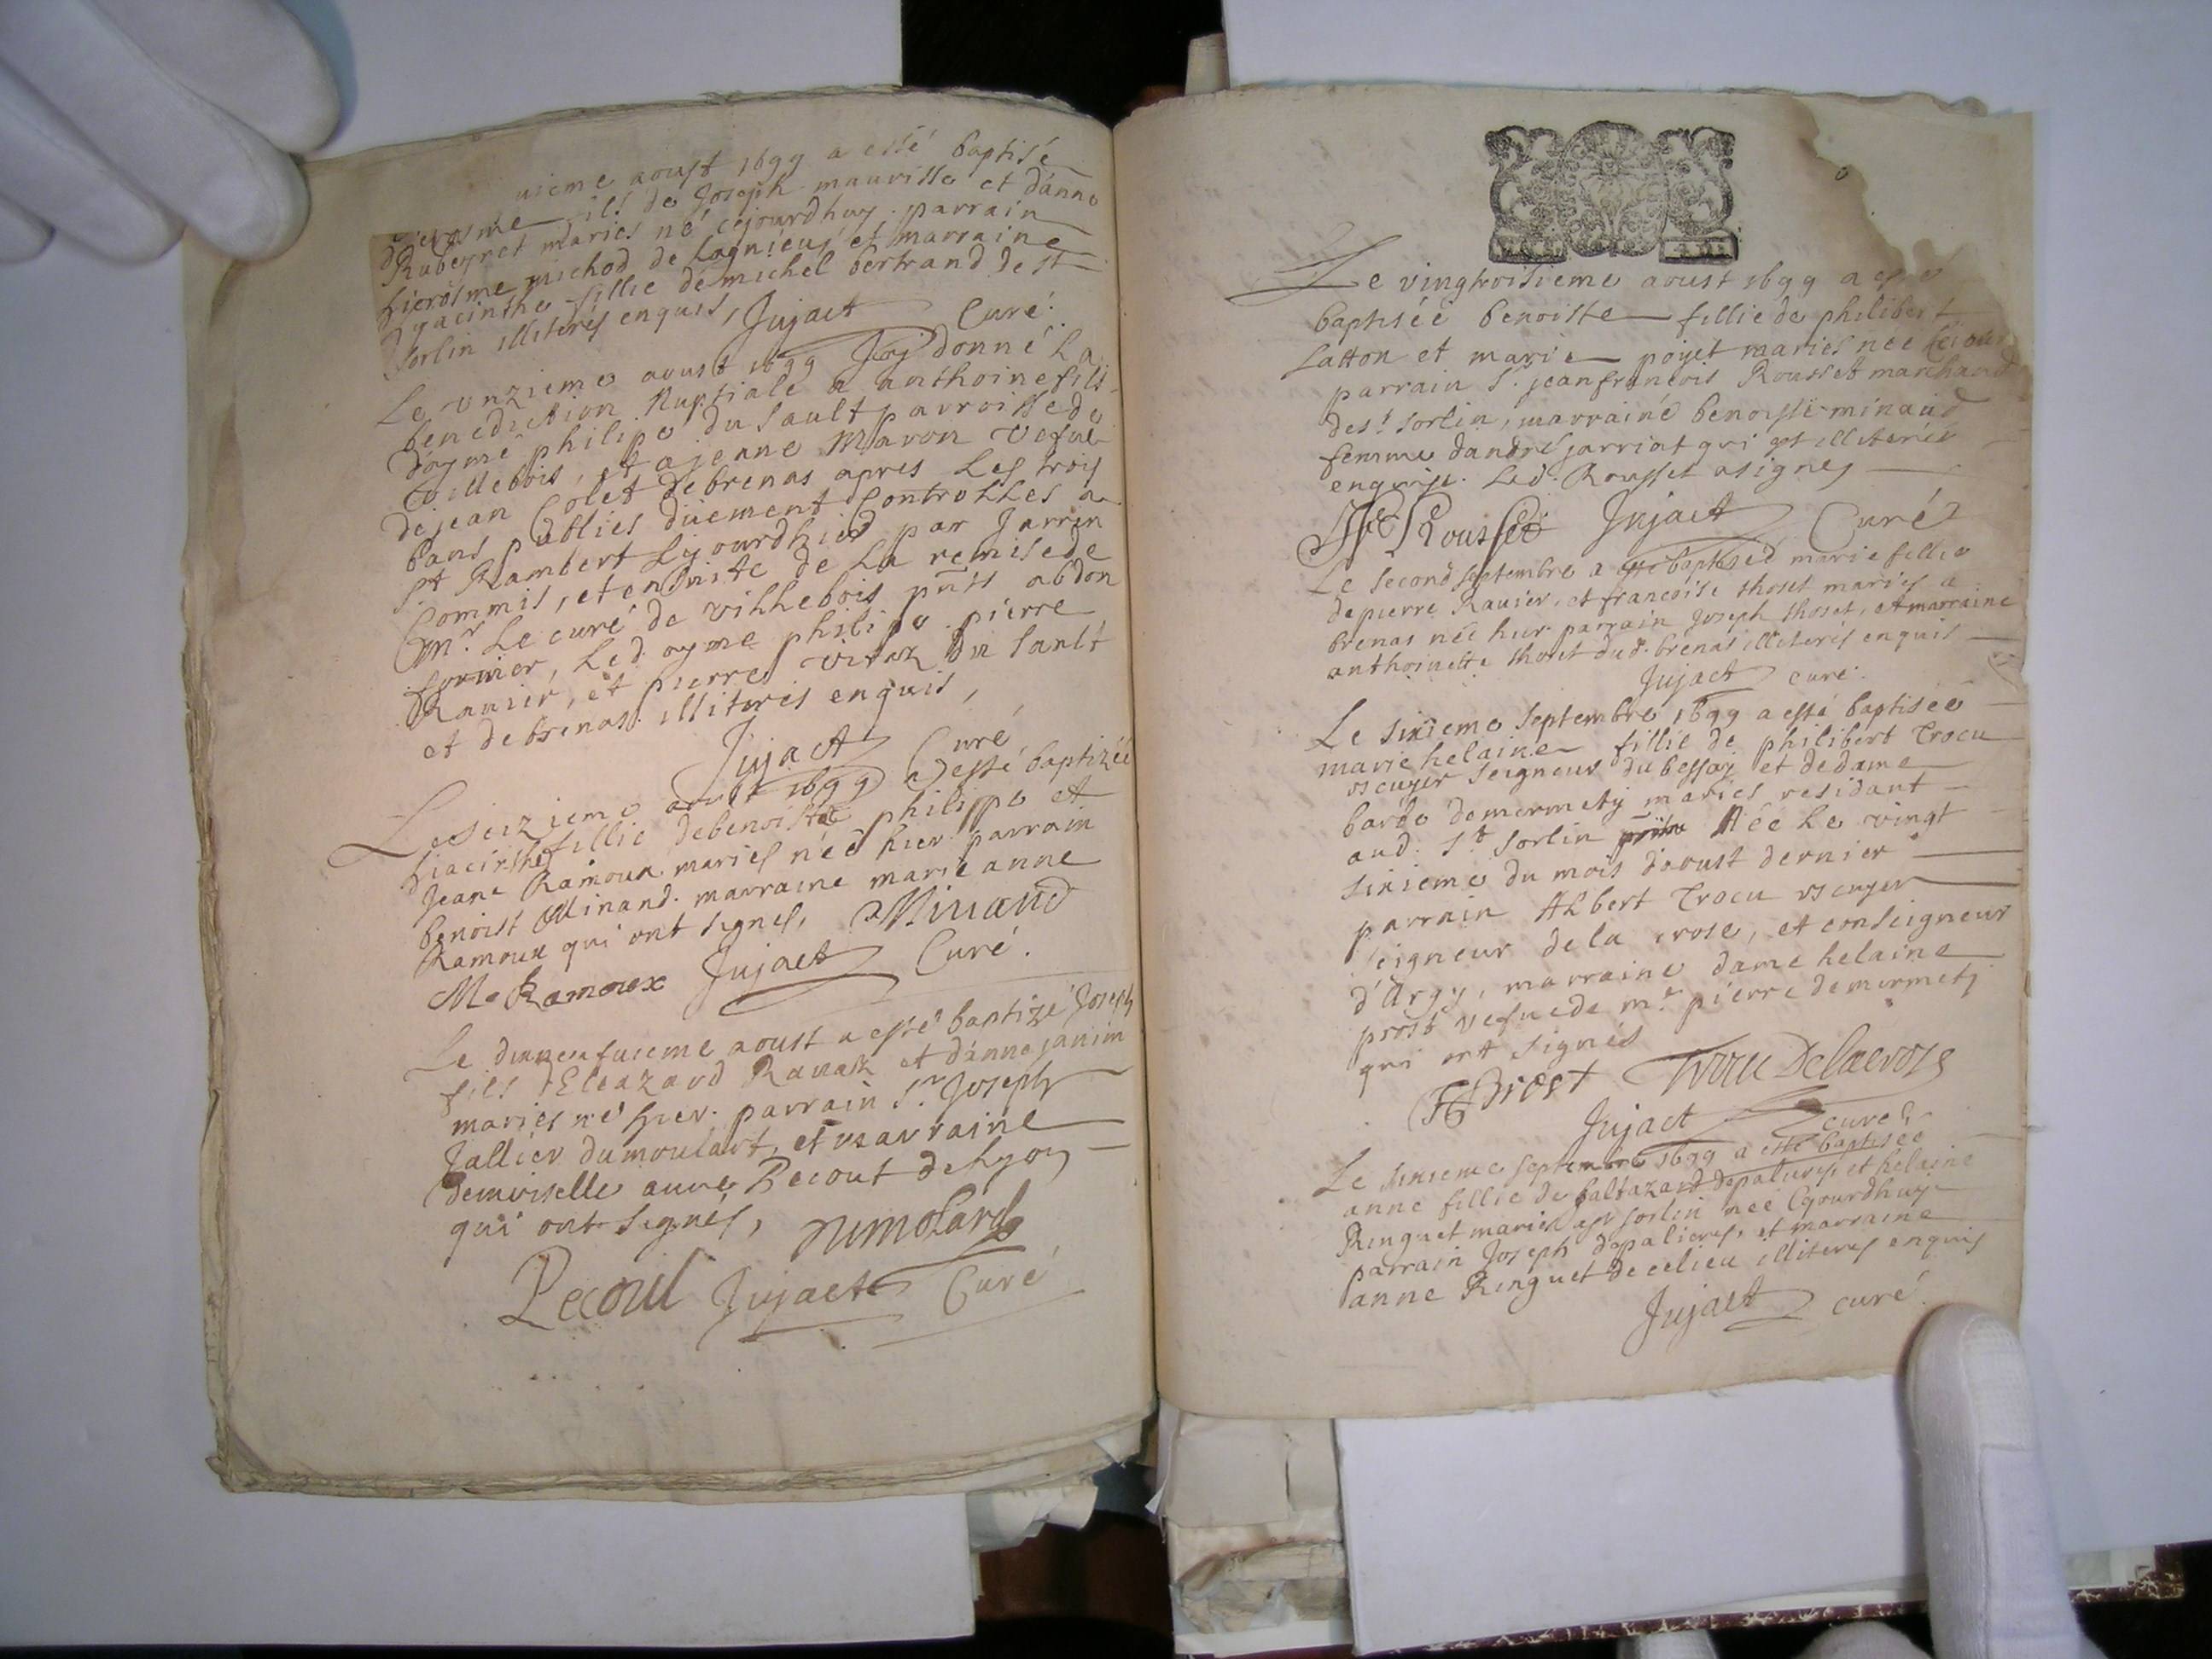 uieme aoust 1699 a esté baptisé
fils de Joseph maurisse et d'anne
Rubeyret mariés né cejourdhuy. parrain
hierosme michod de Lagnieus et marraine
hyacinthe fillie de michel bertrand de st
sorlin illiterés enquis, Jujact Curé.
Le unzieme aoust 1699 J'ay donné La
benediction Nuptiale a anthoine fils
d'ayme philipe du Sault parroisse de
villebois, et a jeanne Maron vefue
de jean Colet de brenas apres Les trois
bans publiés duement Controllés a
st Rambert Ljourdhier par Jarrin
Commis, et ensuite de La remise de
mr. Le curé de villebois pnts abdon
fornier, Led. ayme philipe pierre
Rauier, et pierre du Sault
et de brenas. illiterés enquis,
Jujact Curé
Le seizieme aoust 1699 a esté baptizée
hiacinthe fillie de benoiste philippe et
Jeane Ramoux mariés née hier parrain
benoist Minand. marraine marie anne
Ramoux qui ont signés, Minaud
M a Ramoux Jujact Curé.
Le dixneufuieme aoust a esté baptizé Joseph
fils d'Eleazard Rauak et d'anne janin
mariés né hier. parrain Sr. Joseph
Jallier dumoulart, et marraine
demoiselle anne Recout de Lyon
qui ont signés, dumolard
Recoul Jujact Curé
Le vingtroisieme aoust 1699 a esté
baptisée benoiste fillie de philibert
Latton et marie poyet mariés née
parrain Sr. jean francois Rousset marchand
de st sorlin, marraine benoiste minaud
femme dandré jarriat qui est illiterée
enquise. Led. Rousset a signé
Rousset Jujact Curé
Le second septembre a esté baptisée marie fillie
de pierre Rauier, et francoise thoset mariés a
brenas née hier parrain Joseph thoset, et marraine
anthoinette thoset dud. brenas illiterés enquis
Jujact curé.
Le sixieme septembre 1699 a esté baptisée
marie helaine fillie de philibert Trocu
escuyer seigneur du bessay et de dame
barbe demermety mariés residant
aud. st sorlin Née Le vingt
sixieme du mois daoust dernier
parrain Albert Trocu escuyer
seigneur de la crose, et conseigneur
d'Argy, marraine dame helaine
prost vefue de mr. pierre de mermety
qui ont signés
H Prost Trocu Delacroze
Jujact curé
Le sixieme septembre 1699 a esté baptisée
anne fillie de baltazard depalieres et helaine
Ringuet mariés a st sorlin née Cejourdhuy
parrain Joseph depalieres, et marraine
anne Ringuet de ce lieu illiteres enquis
Jujact curé